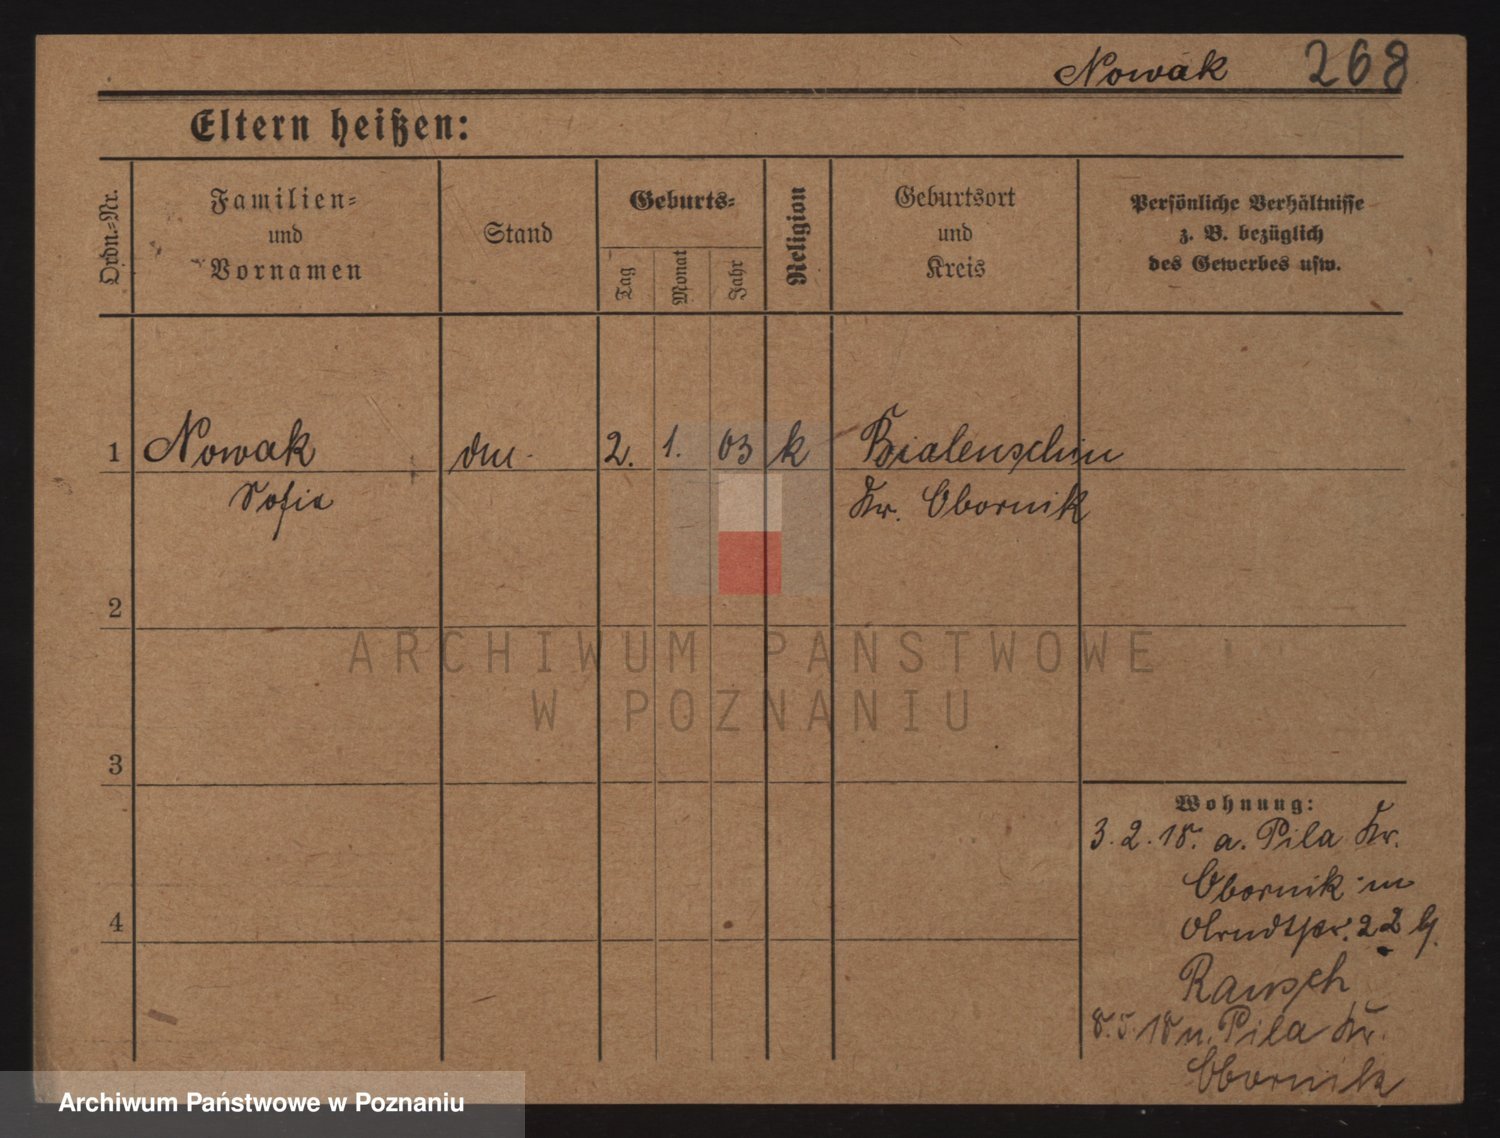 Nowak 268
Eltern heißen:
Ordn.-Nr.
Familien-
und
Vornamen
Stand
Geburts-
Tag
Monat
Jahr
Religion
Geburtsort
und
Kreis
Persönliche Verhältnisse
z. B. bezüglich
des Gewerbes usw.
1 Nowak 2. 1. 03 k Bialenschin
Sofia Kr. Obornik
2
ARCHIWUM PAŃSTWOWE
W POZNANIU
3
Wohnung:
3. 2. 18. a. Pila Kr.
Obornik in
22
4
Rausch
8. 5. 18 n. Pila Kr.
Obornik
Archiwum Państwowe w Poznaniu